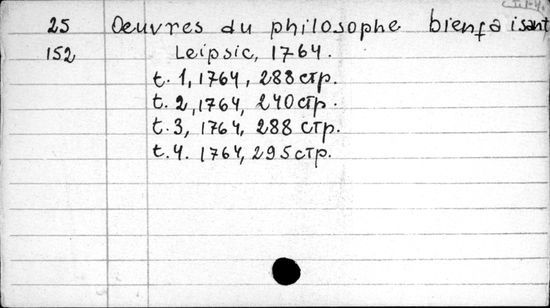 25 Oeuvres du philosophe bienfaisant
152 Leipsic, 1764.
t. 1, 1764, 288 стр.
t. 2, 1764, 240 стр.
t. 3, 1764, 288 стр.
t. 4. 1764, 295 стр.